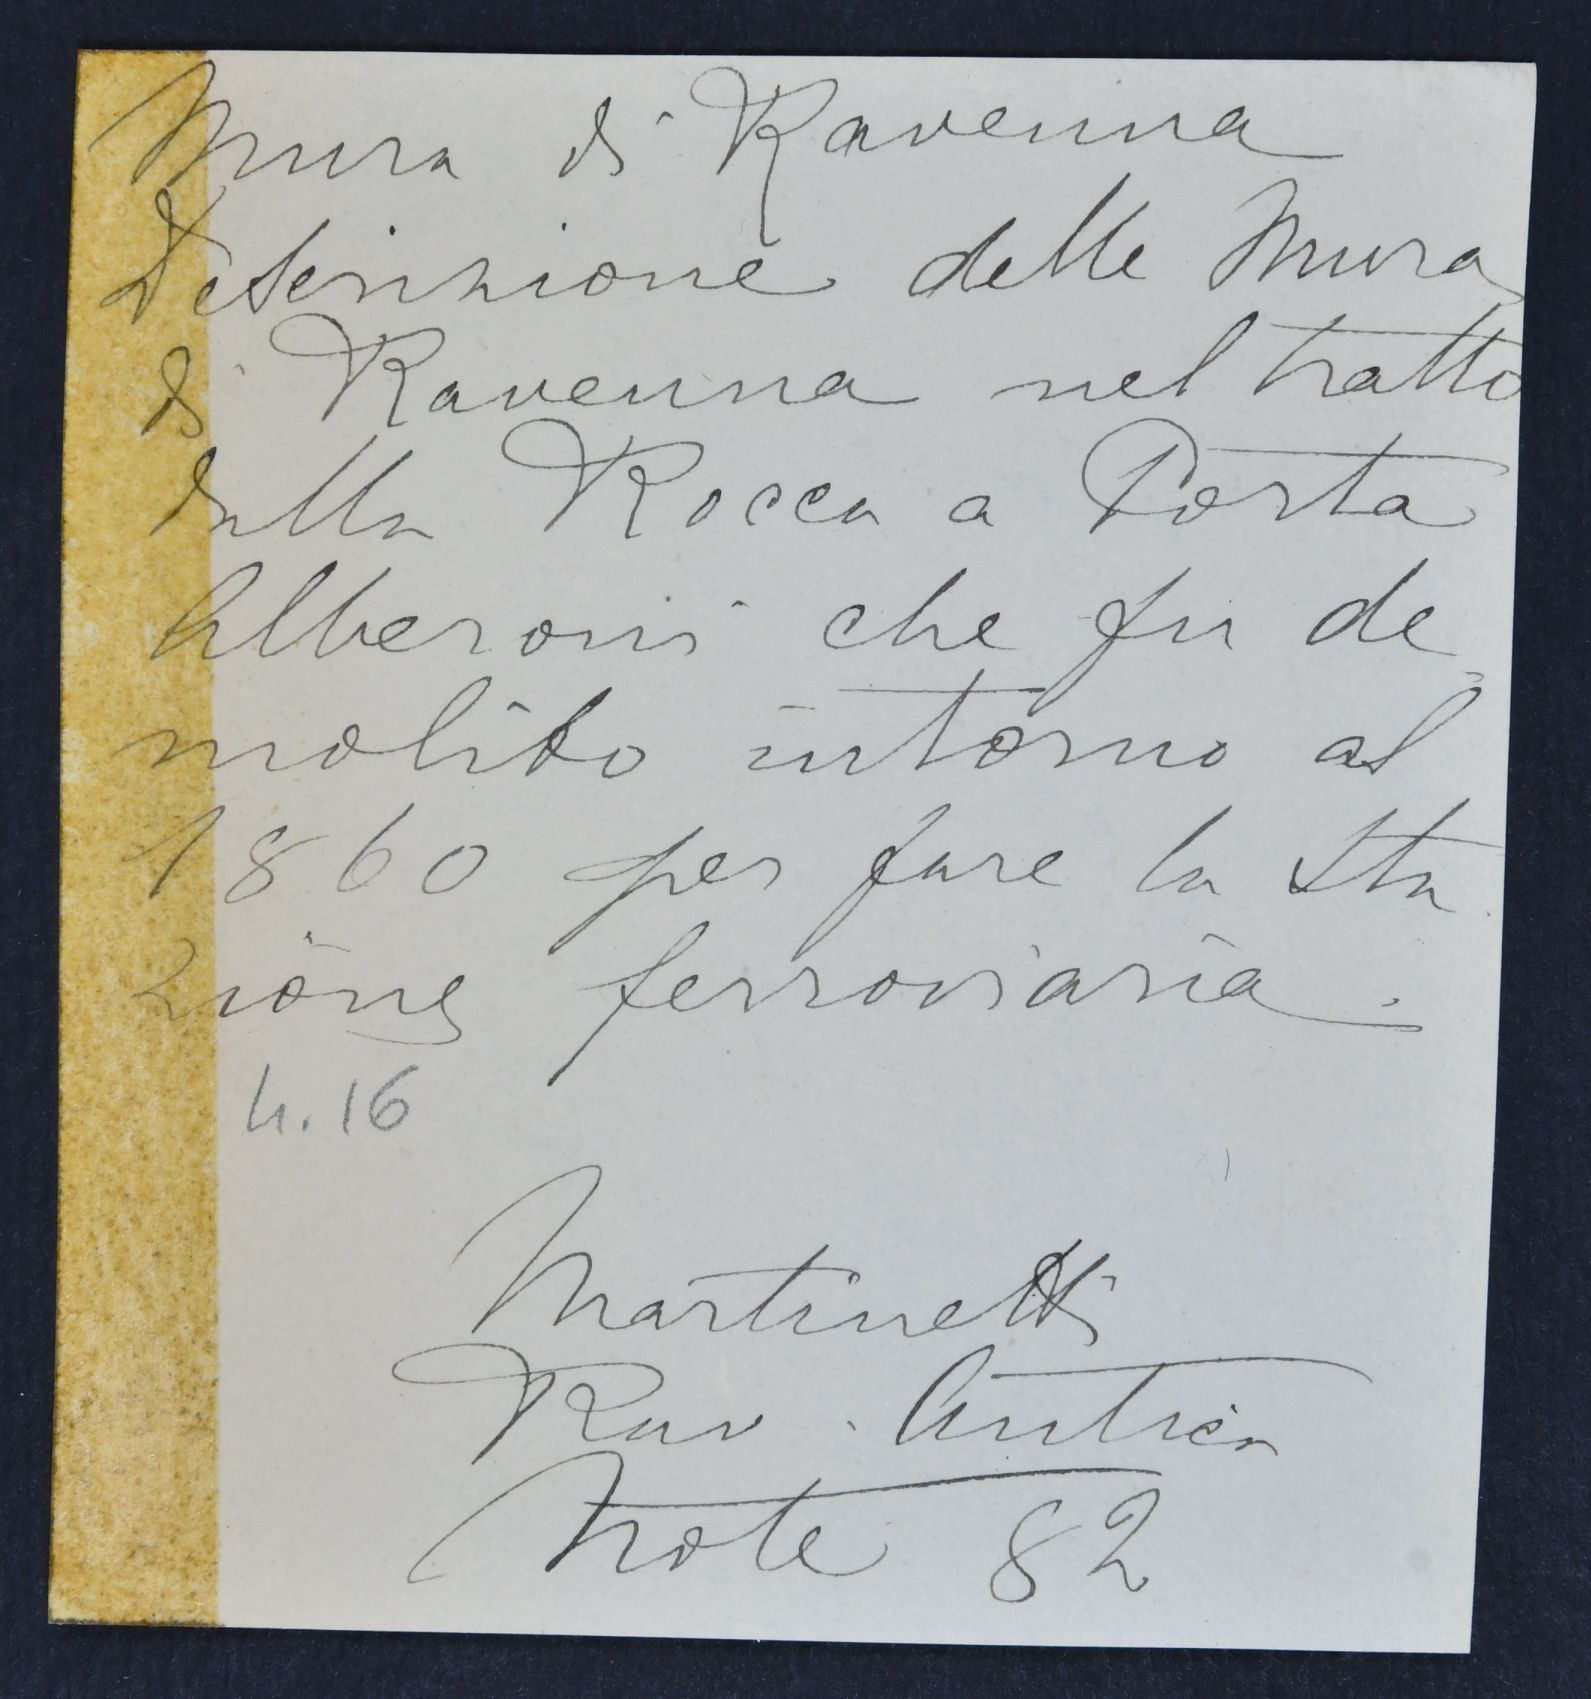 Mura di Ravenna
Descrizione delle Mura
di Ravenna nel tratto
dalla Rocca a Porta
Alberoni che fu de-
molito intorno al
1860 per fare la Sta-
zione ferroviaria.
n. 16
Martinetti
Rav. Antica
Note 82